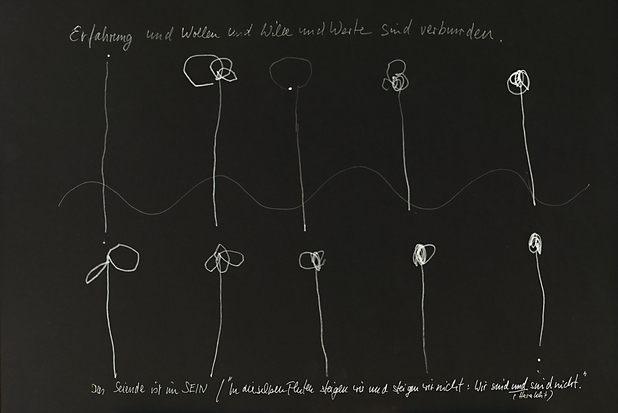 Erfahrung und Wollen und Wille und Werte sind verbunden.
Das Seiende ist im SEIN / "In dieselben Fluten steigen wir und steigen wir nicht: Wir sind und sind nicht."
(Heraklit)